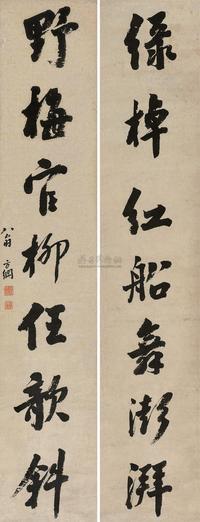 綠棹紅船舞澎湃
野梅官柳任欹斜
翁方綱